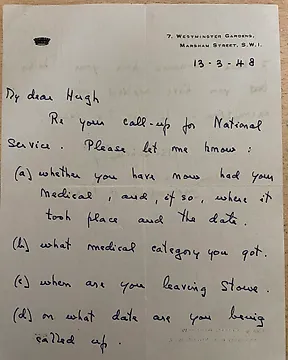 7, Westminster Gardens,
Marsham Street, S.W.1.
13-3-48
My dear Hugh
Re your call-up for National
Service. Please let me know:
(a) whether you have now had your
medical, and, if so, where it
took place and the date.
(b) what medical category you got.
(c) when are you leaving Stowe.
(d) on what date are you being
called up.